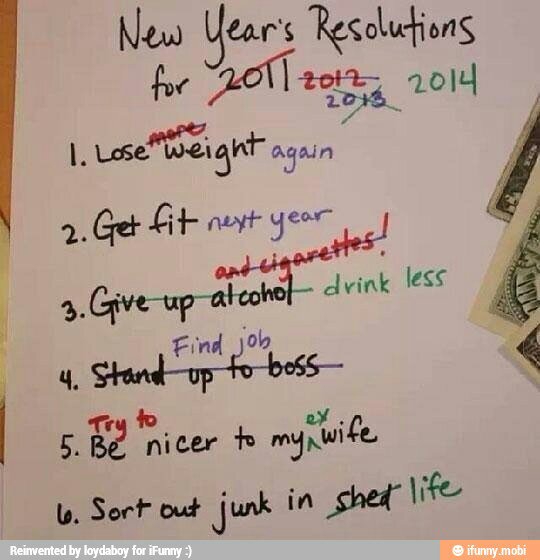 New Year's Resolutions
for 2011 2012 2013 2014
1. Lose more weight again
2. Get fit next year
and cigarettes!
3. Give up alcohol drink less
Find job
4. Stand up to boss
Try to ex
5. Be nicer to my wife
6. Sort out junk in shed life
Reinvented by loydaboy for iFunny :)
ifunny.mobi